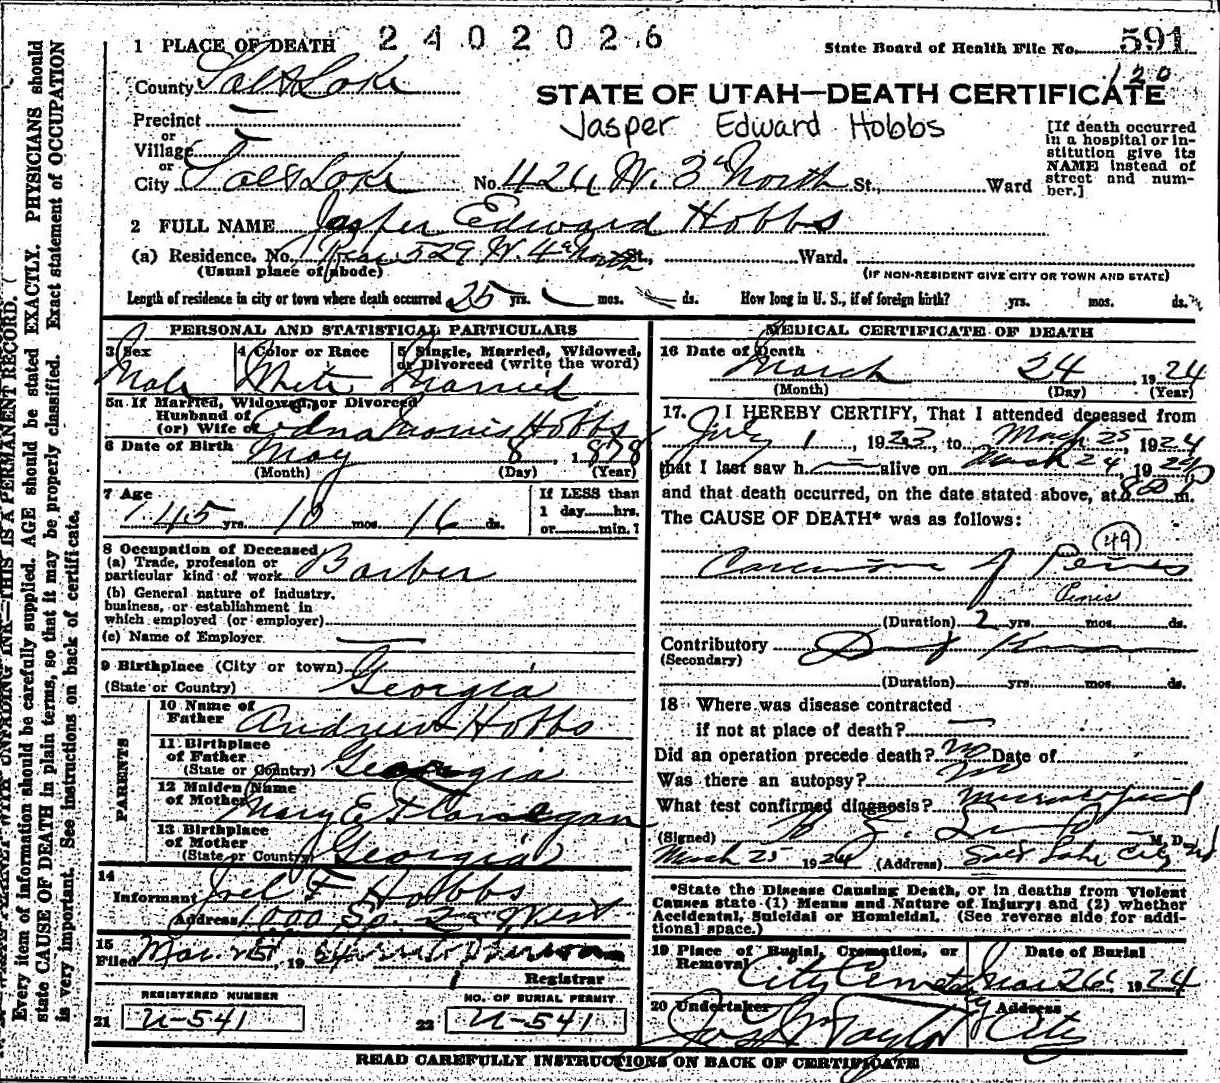 1 PLACE OF DEATH
2402026
State Board of Health File No. 591
120
County Salt Lake
STATE OF UTAH—DEATH CERTIFICATE
Precinct
or
Village
or
City Salt Lake
Jasper Edward Hobbs
[If death occurred in a hospital or institution give its NAME instead of street and number.]
No. 424 W. 3d North St., Ward
2 FULL NAME Jasper Edward Hobbs
(a) Residence. No. Rear 529 W. 4th North St., Ward.
(Usual place of abode)
(IF NON-RESIDENT GIVE CITY OR TOWN AND STATE)
Length of residence in city or town where death occurred 25 yrs. mos. ds. How long in U. S., if of foreign birth? yrs. mos. ds.
PERSONAL AND STATISTICAL PARTICULARS
3 Sex
Male
4 Color or Race
White
5 Single, Married, Widowed, or Divorced (write the word)
Married
5a If Married, Widowed, or Divorced
Husband of
(or) Wife of Edna Morris Hobbs
6 Date of Birth May 8, 1878
(Month) (Day) (Year)
7 Age
45 yrs. 10 mos. 16 ds.
If LESS than
1 day......hrs.
or......min.?
8 Occupation of Deceased
(a) Trade, profession or
particular kind of work Barber
(b) General nature of industry,
business, or establishment in
which employed (or employer)
(c) Name of Employer
9 Birthplace (City or town)
(State or Country) Georgia
PARENTS
10 Name of
Father Andrew Hobbs
11 Birthplace
of Father
(State or Country) Georgia
12 Maiden Name
of Mother Mary E Flanegan
13 Birthplace
of Mother
(State or Country) Georgia
14
Informant Joel F Hobbs
Address 1000 So. 2nd West
15
Filed Mar. 25, 1924
Registrar
REGISTERED NUMBER
21 U-541
NO. OF BURIAL PERMIT
22 U-541
MEDICAL CERTIFICATE OF DEATH
16 Date of Death
March 24, 1924
(Month) (Day) (Year)
17. I HEREBY CERTIFY, That I attended deceased from
July 1, 1923, to March 25, 1924
that I last saw h alive on March 24, 1924
and that death occurred, on the date stated above, at 8 00 m.
The CAUSE OF DEATH* was as follows:
49
Carcinoma of Penis
Penis
(Duration) 2 yrs. mos. ds.
Contributory
(Secondary)
(Duration) yrs. mos. ds.
18 Where was disease contracted
if not at place of death?
Did an operation precede death? no Date of
Was there an autopsy? no
What test confirmed diagnosis?
(Signed) M. D.
March 25 1924 (Address) Salt Lake City
*State the Disease Causing Death, or in deaths from Violent Causes state (1) Means and Nature of Injury; and (2) whether Accidental, Suicidal or Homicidal. (See reverse side for additional space.)
19 Place of Burial, Cremation, or
Removal City Cemetery
Date of Burial
Mar 26, 1924
20 Undertaker
Jos Wm Taylor
Address
City
READ CAREFULLY INSTRUCTIONS ON BACK OF CERTIFICATE
Every item of information should be carefully supplied. AGE should be stated EXACTLY. PHYSICIANS should
state CAUSE OF DEATH in plain terms, so that it may be properly classified. Exact statement of OCCUPATION
is very important. See instructions on back of certificate.